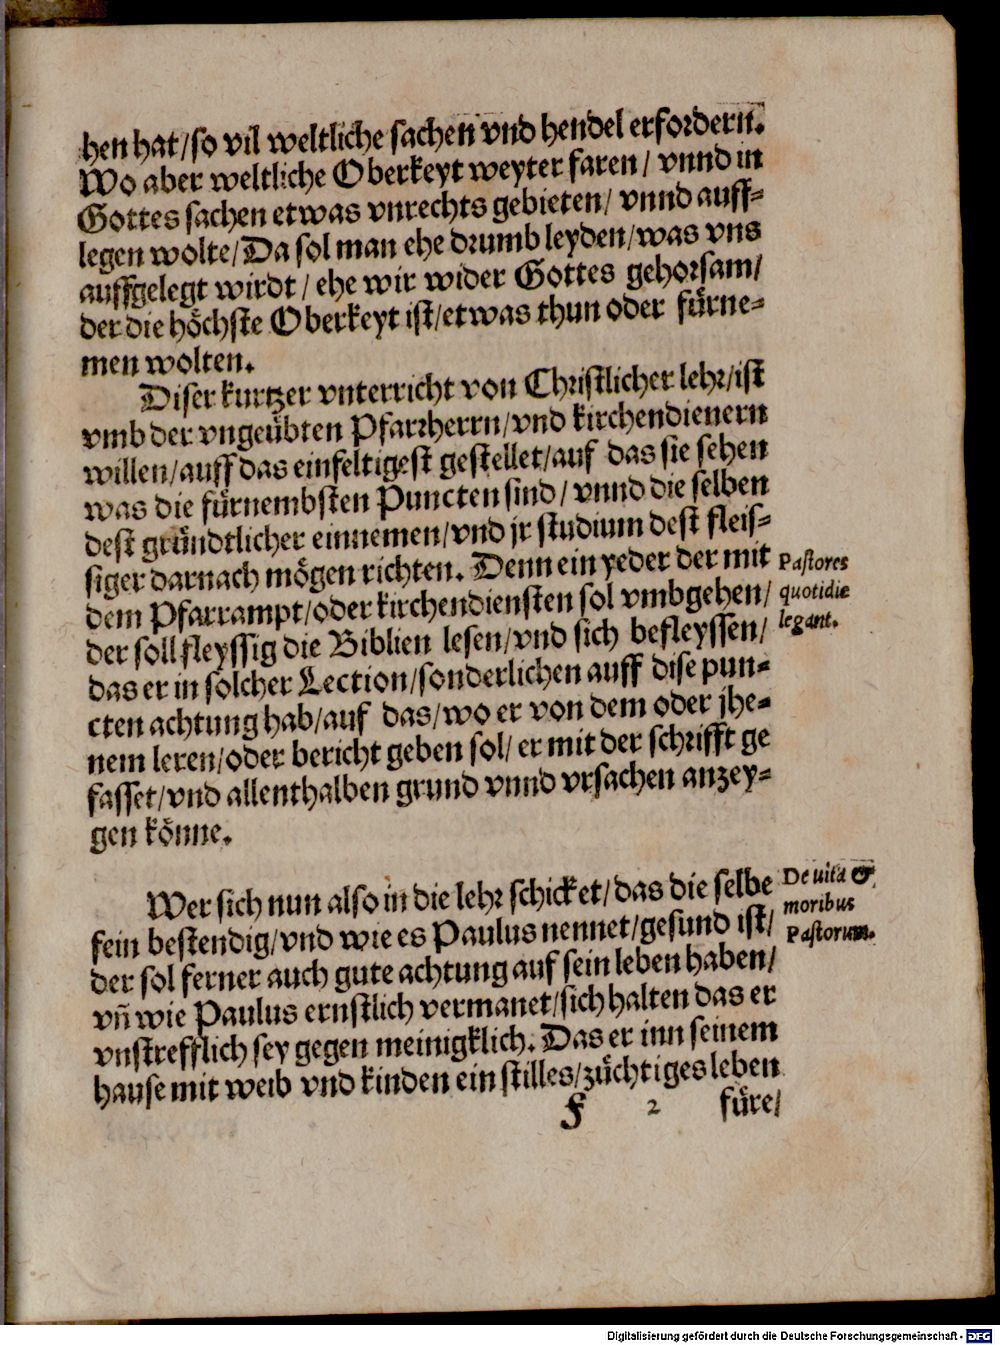 hen hat/so vil weltliche sachen vnd hendel erfordern.
Wo aber weltliche Oberkeyt weyter faren/ vnnd in
Gottes sachen etwas vnrechts gebieten/ vnnd auff-
legen wolte/Da sol man ehe drumb leyden/was vns
auffgelegt wirdt/ ehe wir wider Gottes gehorsam/
der die höchste Oberkeyt ist/etwas thun oder fürne-
men wolten.
Diser kurtzer vnterricht von Christlicher lehr/ist
vmb der vngeübten Pfarrherrn/vnd kirchendienern
willen/auff das einfeltigest gestellet/auf das sie sehen
was die fürnembsten Puncten sind/ vnnd die selben
dest gründtlicher einnemen/vnd jr studium dest fleis-
siger darnach mögen richten. Denn ein yeder der mit
dem Pfarrampt/oder kirchendiensten sol vmbgehen/
der soll fleyssig die Biblien lesen/vnd sich befleyssen/
das er in solcher Lection/sonderlichen auff dise pun-
cten achtung hab/auf das/wo er von dem oder jhe-
nem leren/oder bericht geben sol/ er mit der schrifft ge
fasset/vnd allenthalben grund vnnd vrsachen anzey-
gen könne.
Pastores
quotidie
legant.
Wer sich nun also in die lehr schicket/das die selbe
fein bestendig/vnd wie es Paulus nennet/gesund ist/
der sol ferner auch gute achtung auf sein leben haben/
vñ wie Paulus ernstlich vermanet/sich halten das er
vnstrefflich sey gegen meinigklich. Das er inn seinem
hause mit weib vnd kinden ein stilles/züchtiges leben
De uita &
moribus
Pastorum.
F 2 füre/
Digitalisierung gefördert durch die Deutsche Forschungsgemeinschaft - DFG